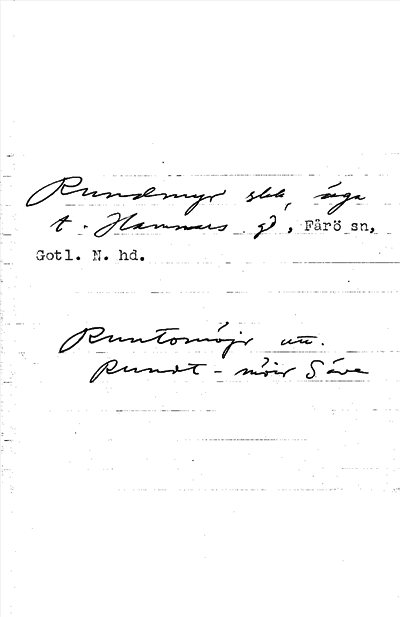 Rundmyr slåt, äga
t. Hammars gd, Fårö sn,
Gotl. N. hd.
Runtomöjr utt.
Rundt-möir Säve